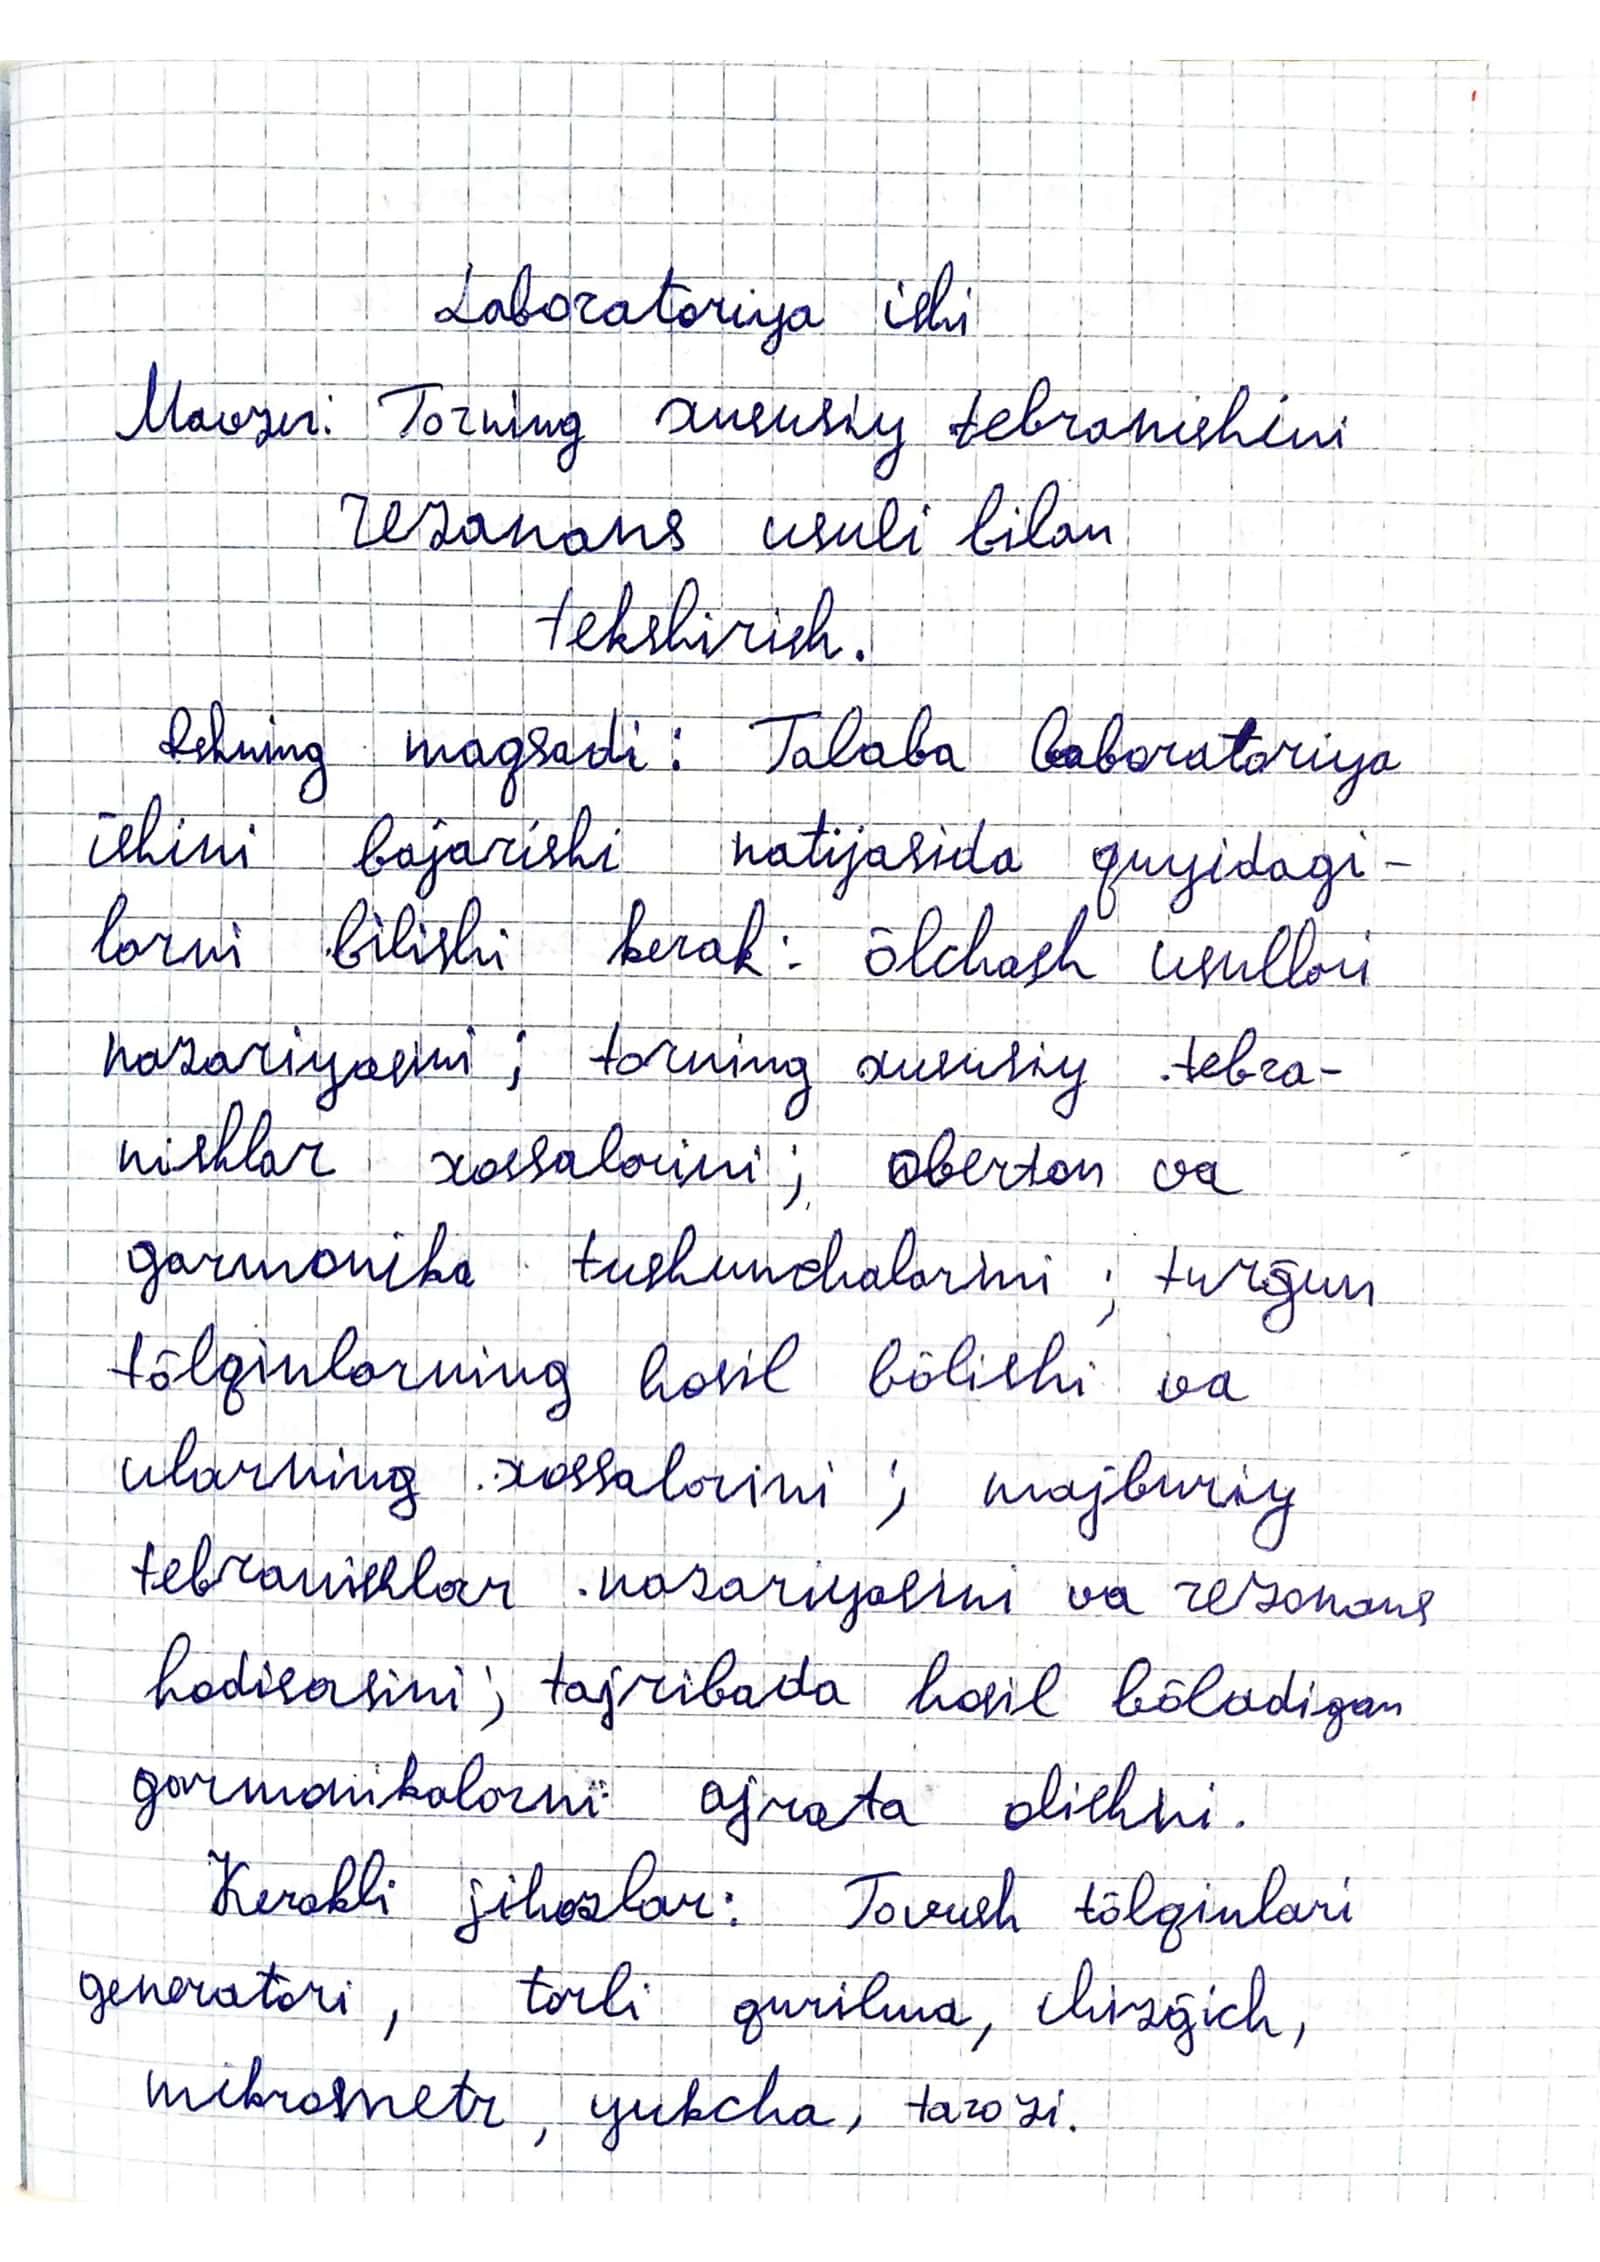 Laboratoriya ishi
Mavzu: Torning xususiy tebranishini
rezonans usuli bilan
tekshirish.
Ishning maqsadi: Talaba laboratoriya
ishini bajarishi natijasida quyidagi-
larni bilishi kerak: ōlchash usullari
nazariyasini; torning xususiy tebra-
nishlar xossalarini; oberton va
garmonika tushunchalarini; turḡun
tōlqinlarning hosil bōlishi va
ularning xossalarini; majburiy
tebranishlar nazariyasini va rezonans
hodisasini; tajribada hosil bōladigan
garmonikalarni ajrata olishni.
Kerakli jihozlar: Tovush tōlqinlari
generatori, torli qurilma, chizḡich,
mikrometr, yukcha, tarozi.